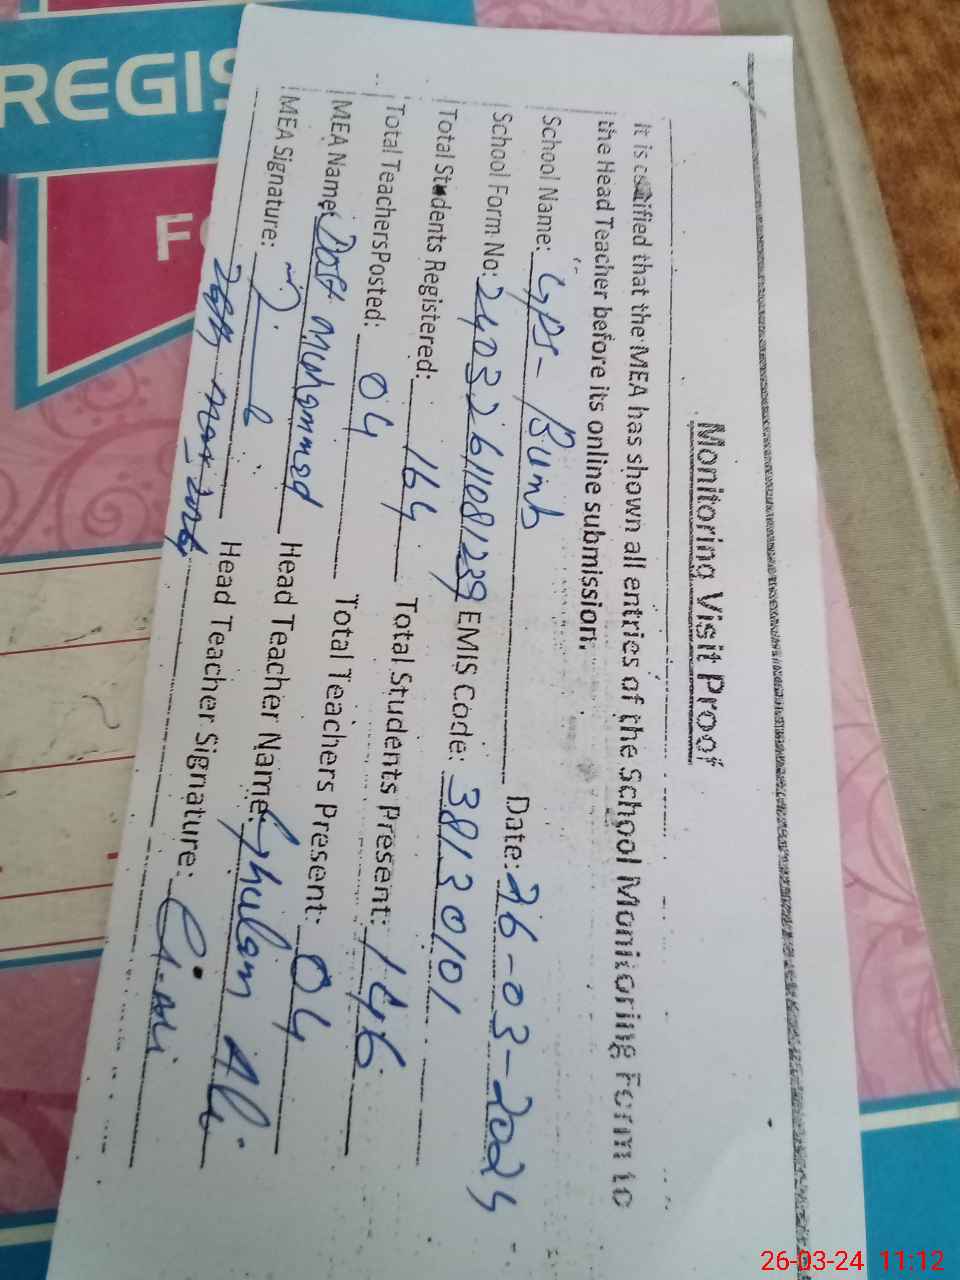 REGIS
F
Monitoring Visit Proof
It is certified that the MEA has shown all entries of the School Monitoring Form to
the Head Teacher before its online submission.
School Name: GPS- Bumb Date: 26-03-2024
School Form No: 24032611081239 EMIS Code: 38130101
Total Students Registered: 164 Total Students Present: 146
Total Teachers Posted: 04 Total Teachers Present: 04
MEA Name: Dost Muhammad Head Teacher Name: Ghulam Ali
MEA Signature: Head Teacher Signature: G.Ali
26-03-24 11:12